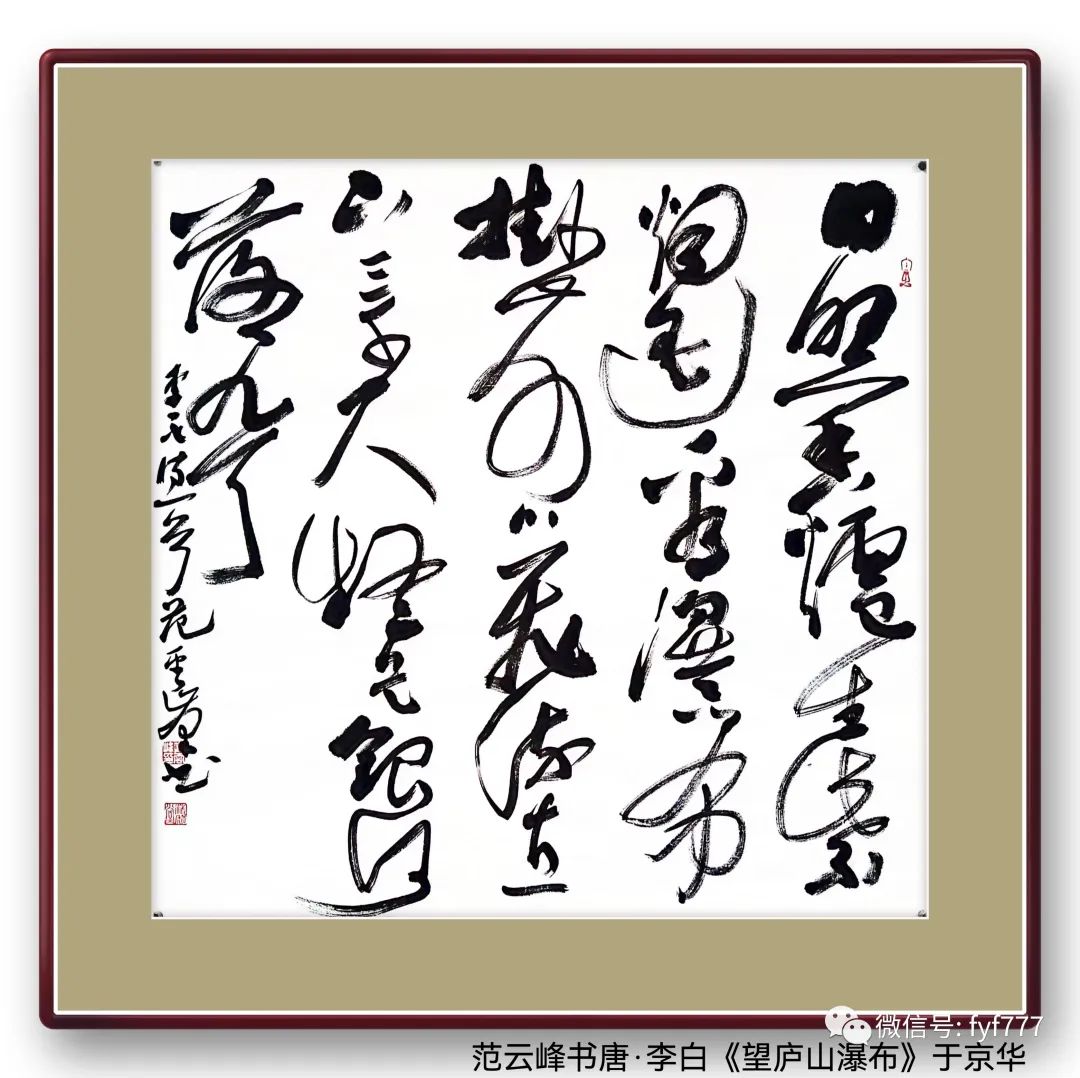 日照香爐生紫
烟遥看瀑布
掛前川飛流直
下三千尺疑是銀河
落九天
李白诗一首 范云峰书
微信号: fyf777
范云峰书唐·李白《望庐山瀑布》于京华